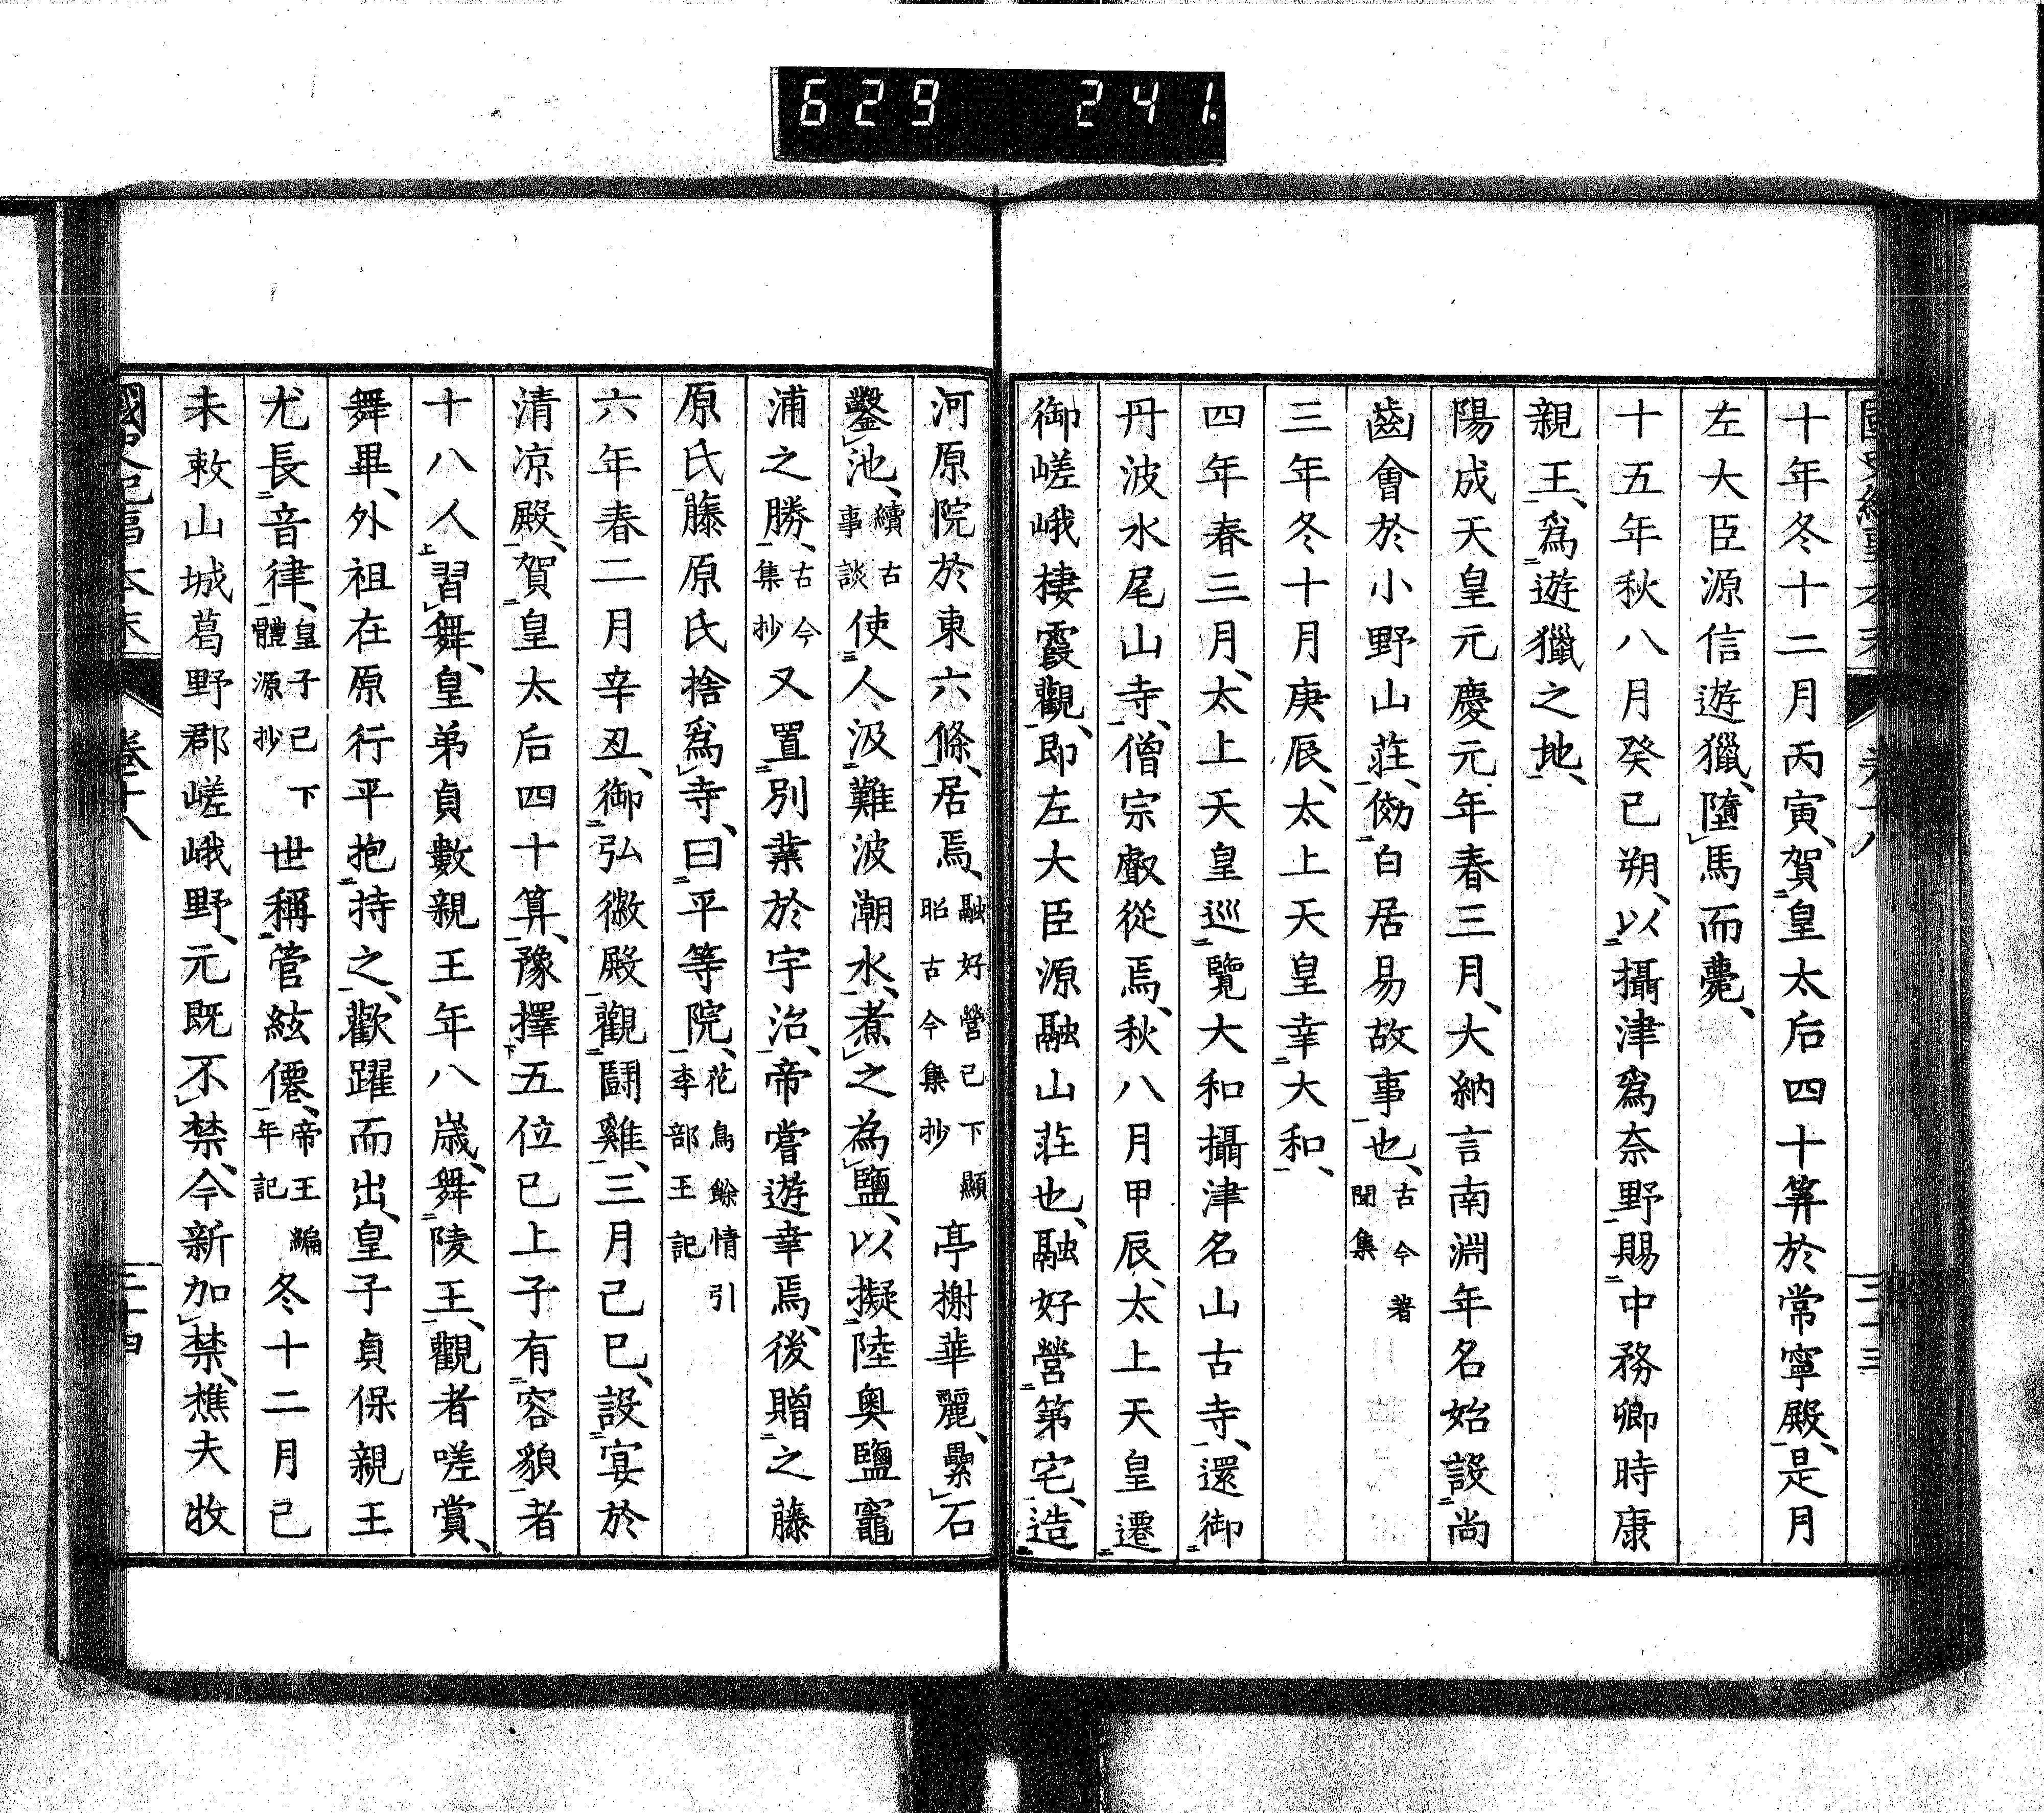 629 241.
十年冬十二月丙寅、賀皇太后四十筭於常寧殿、是月
左大臣源信遊獵、墮馬而薨、
十五年秋八月癸巳朔、以攝津爲奈野賜中務卿時康
親王、爲遊獵之地、
陽成天皇元慶元年春三月、大納言南淵年名始設尚
齒會於小野山莊、効白居易故事也、古今著聞集
三年冬十月庚辰、太上天皇幸大和、
四年春三月、太上天皇巡覽大和攝津名山古寺、還御
丹波水尾山寺、僧宗叡從焉、秋八月甲辰、太上天皇遷
御嵯峨棲霞觀、即左大臣源融山莊也、融好營第宅、造
河原院於東六條、居焉、融好營已下顯昭古今集抄亭榭華麗、壘石
鑿池、續古事談使人汲難波潮水、煮之為鹽、以擬陸奧鹽竈
浦之勝、古今集抄又置別業於宇治、帝嘗遊幸焉、後贈之藤
原氏藤原氏捨爲寺、曰平等院、花鳥餘情引李部王記
六年春二月辛丑、御弘徽殿觀鬪雞、三月己巳、設宴於
清凉殿、賀皇太后四十算、豫擇五位已上子有容貌者
十八人習舞、皇弟貞數親王年八歲、舞陵王、觀者嗟賞、
舞畢、外祖在原行平抱持之、歡躍而出、皇子貞保親王
尤長音律、皇子已下體源抄世稱管絃僊、帝王編年記冬十二月己
未敕山城葛野郡嵯峨野、元既不禁、今新加禁、樵夫牧
國史紀事本末 卷十八 三十四